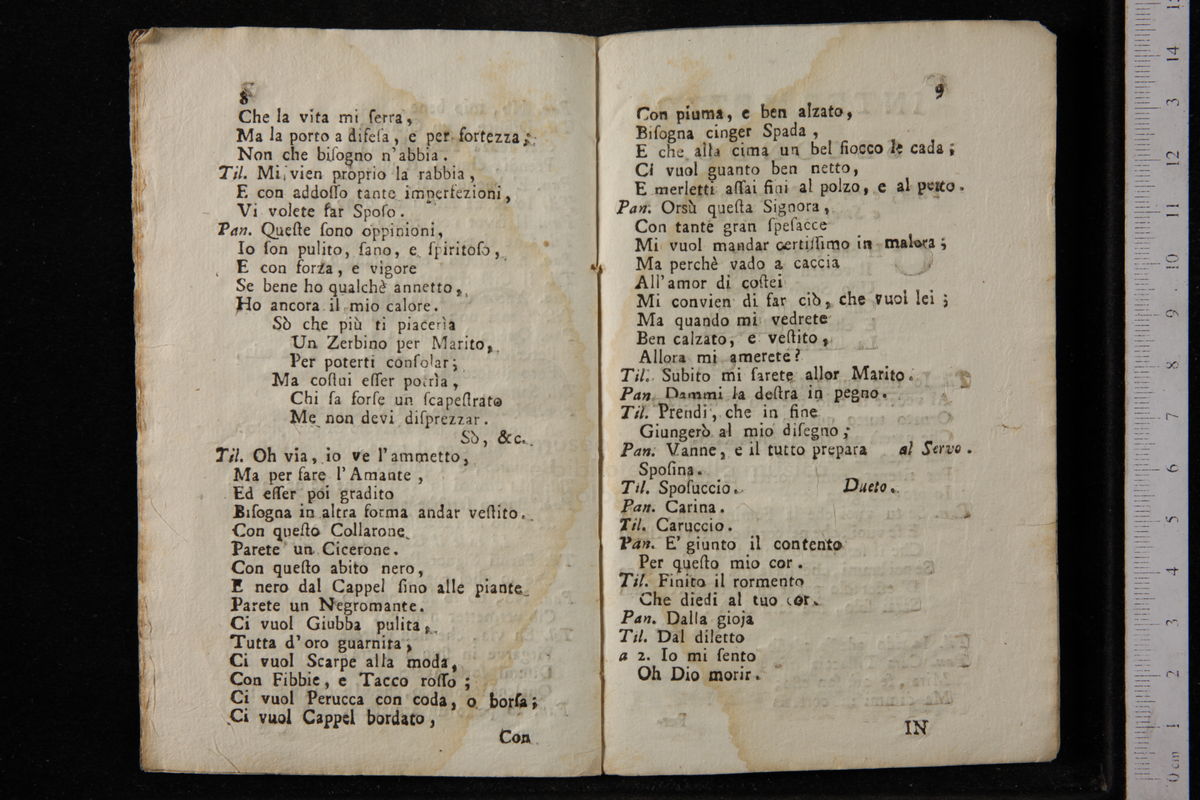 8
Che la vita mi ſerra,
Ma la porto a difeſa, e per fortezza;
Non che biſogno n'abbia.
Til. Mi vien proprio la rabbia,
E con addoſſo tante imperfezioni,
Vi volete far Spoſo.
Pan. Queſte ſono oppinioni,
Io ſon pulito, ſano, e ſpiritoſo,
E con forza, e vigore
Se bene ho qualchè annetto,
Ho ancora il mio calore.
Sò che più ti piacerìa
Un Zerbino per Marito,
Per poterti conſolar;
Ma coſtui eſſer potrìa,
Chi ſa forſe un ſcapeſtrato
Me non devi diſprezzar.
Sò, &c.
Til. Oh via, io ve l'ammetto,
Ma per fare l'Amante,
Ed eſſer poi gradito
Biſogna in altra forma andar veſtito.
Con queſto Collarone
Parete un Cicerone.
Con queſto abito nero,
E nero dal Cappel fino alle piante
Parete un Negromante.
Ci vuol Giubba pulita,
Tutta d'oro guarnita,
Ci vuol Scarpe alla moda,
Con Fibbie, e Tacco roſſo;
Ci vuol Perucca con coda, o borſa;
Ci vuol Cappel bordato,
Con
9
Con piuma, e ben alzato,
Biſogna cinger Spada,
E che alla cima un bel fiocco le cada;
Ci vuol guanto ben netto,
E merletti aſſai fini al polzo, e al petto.
Pan. Orsù queſta Signora,
Con tante gran ſpeſacce
Mi vuol mandar certiſſimo in malora;
Ma perchè vado a caccia
All'amor di coſtei
Mi convien di far ciò, che vuol lei;
Ma quando mi vedrete
Ben calzato, e veſtito,
Allora mi amerete?
Til. Subito mi ſarete allor Marito.
Pan. Dammi la deſtra in pegno.
Til. Prendi, che in fine
Giungerò al mio diſegno;
Pan. Vanne, e il tutto prepara al Servo.
Spoſina.
Til. Spoſuccio. Dueto.
Pan. Carina.
Til. Caruccio.
Pan. E' giunto il contento
Per queſto mio cor.
Til. Finito il rormento
Che diedi al tuo cor.
Pan. Dalla gioja
Til. Dal diletto
a 2. Io mi ſento
Oh Dio morir.
IN
0 cm 1 2 3 4 5 6 7 8 9 10 11 12 13 14